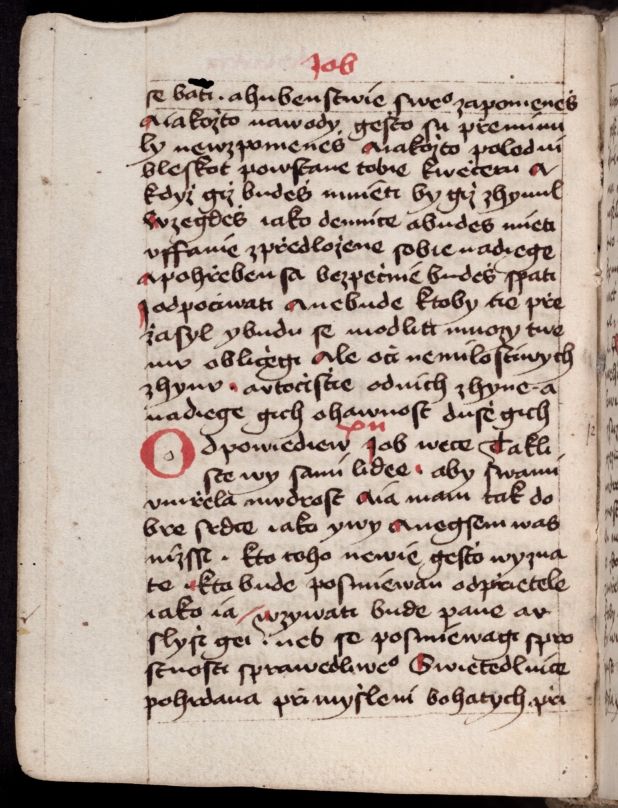 Job
se bati · a hubenstwie swe⁰ zapomeneš
A iakožto na wody gešto su přeminu
ly newzpomeneš A iakožto poledni
bleskot powstane tobie kwečeru A
když giž budeš mnieti by giž zhynul
Wzegdeš iako dennice a budes mieti
vffanie zpředložene sobie nadiege
a pohřeben sa bezpečnie budeš spati
J odpočiwati A nebude ktoby tie pře
žasyl y budu se modliti mnozy twe
mv obličegi Ale oči nemilostiwych
zhynv · a vtočištie od nich zhyne · a
nadiege gich ohawnost dušě gich
XII
Odpowiediew Job wece Takli
ste wy sami lidee · aby s wami
vmřela mvdrost A ia mam tak do
bre srdce iako y wy A negsem was
nižssi · kto toho newie gešto wyzna
te · kto bude posmiewan od přietele
iako ia / wzywati bude pane a v
slyši gei · neb se posmiewagi spro
stnosti sprawedliwe⁰ Swietedlnice
pohrdana při myšleni bohatych při
12